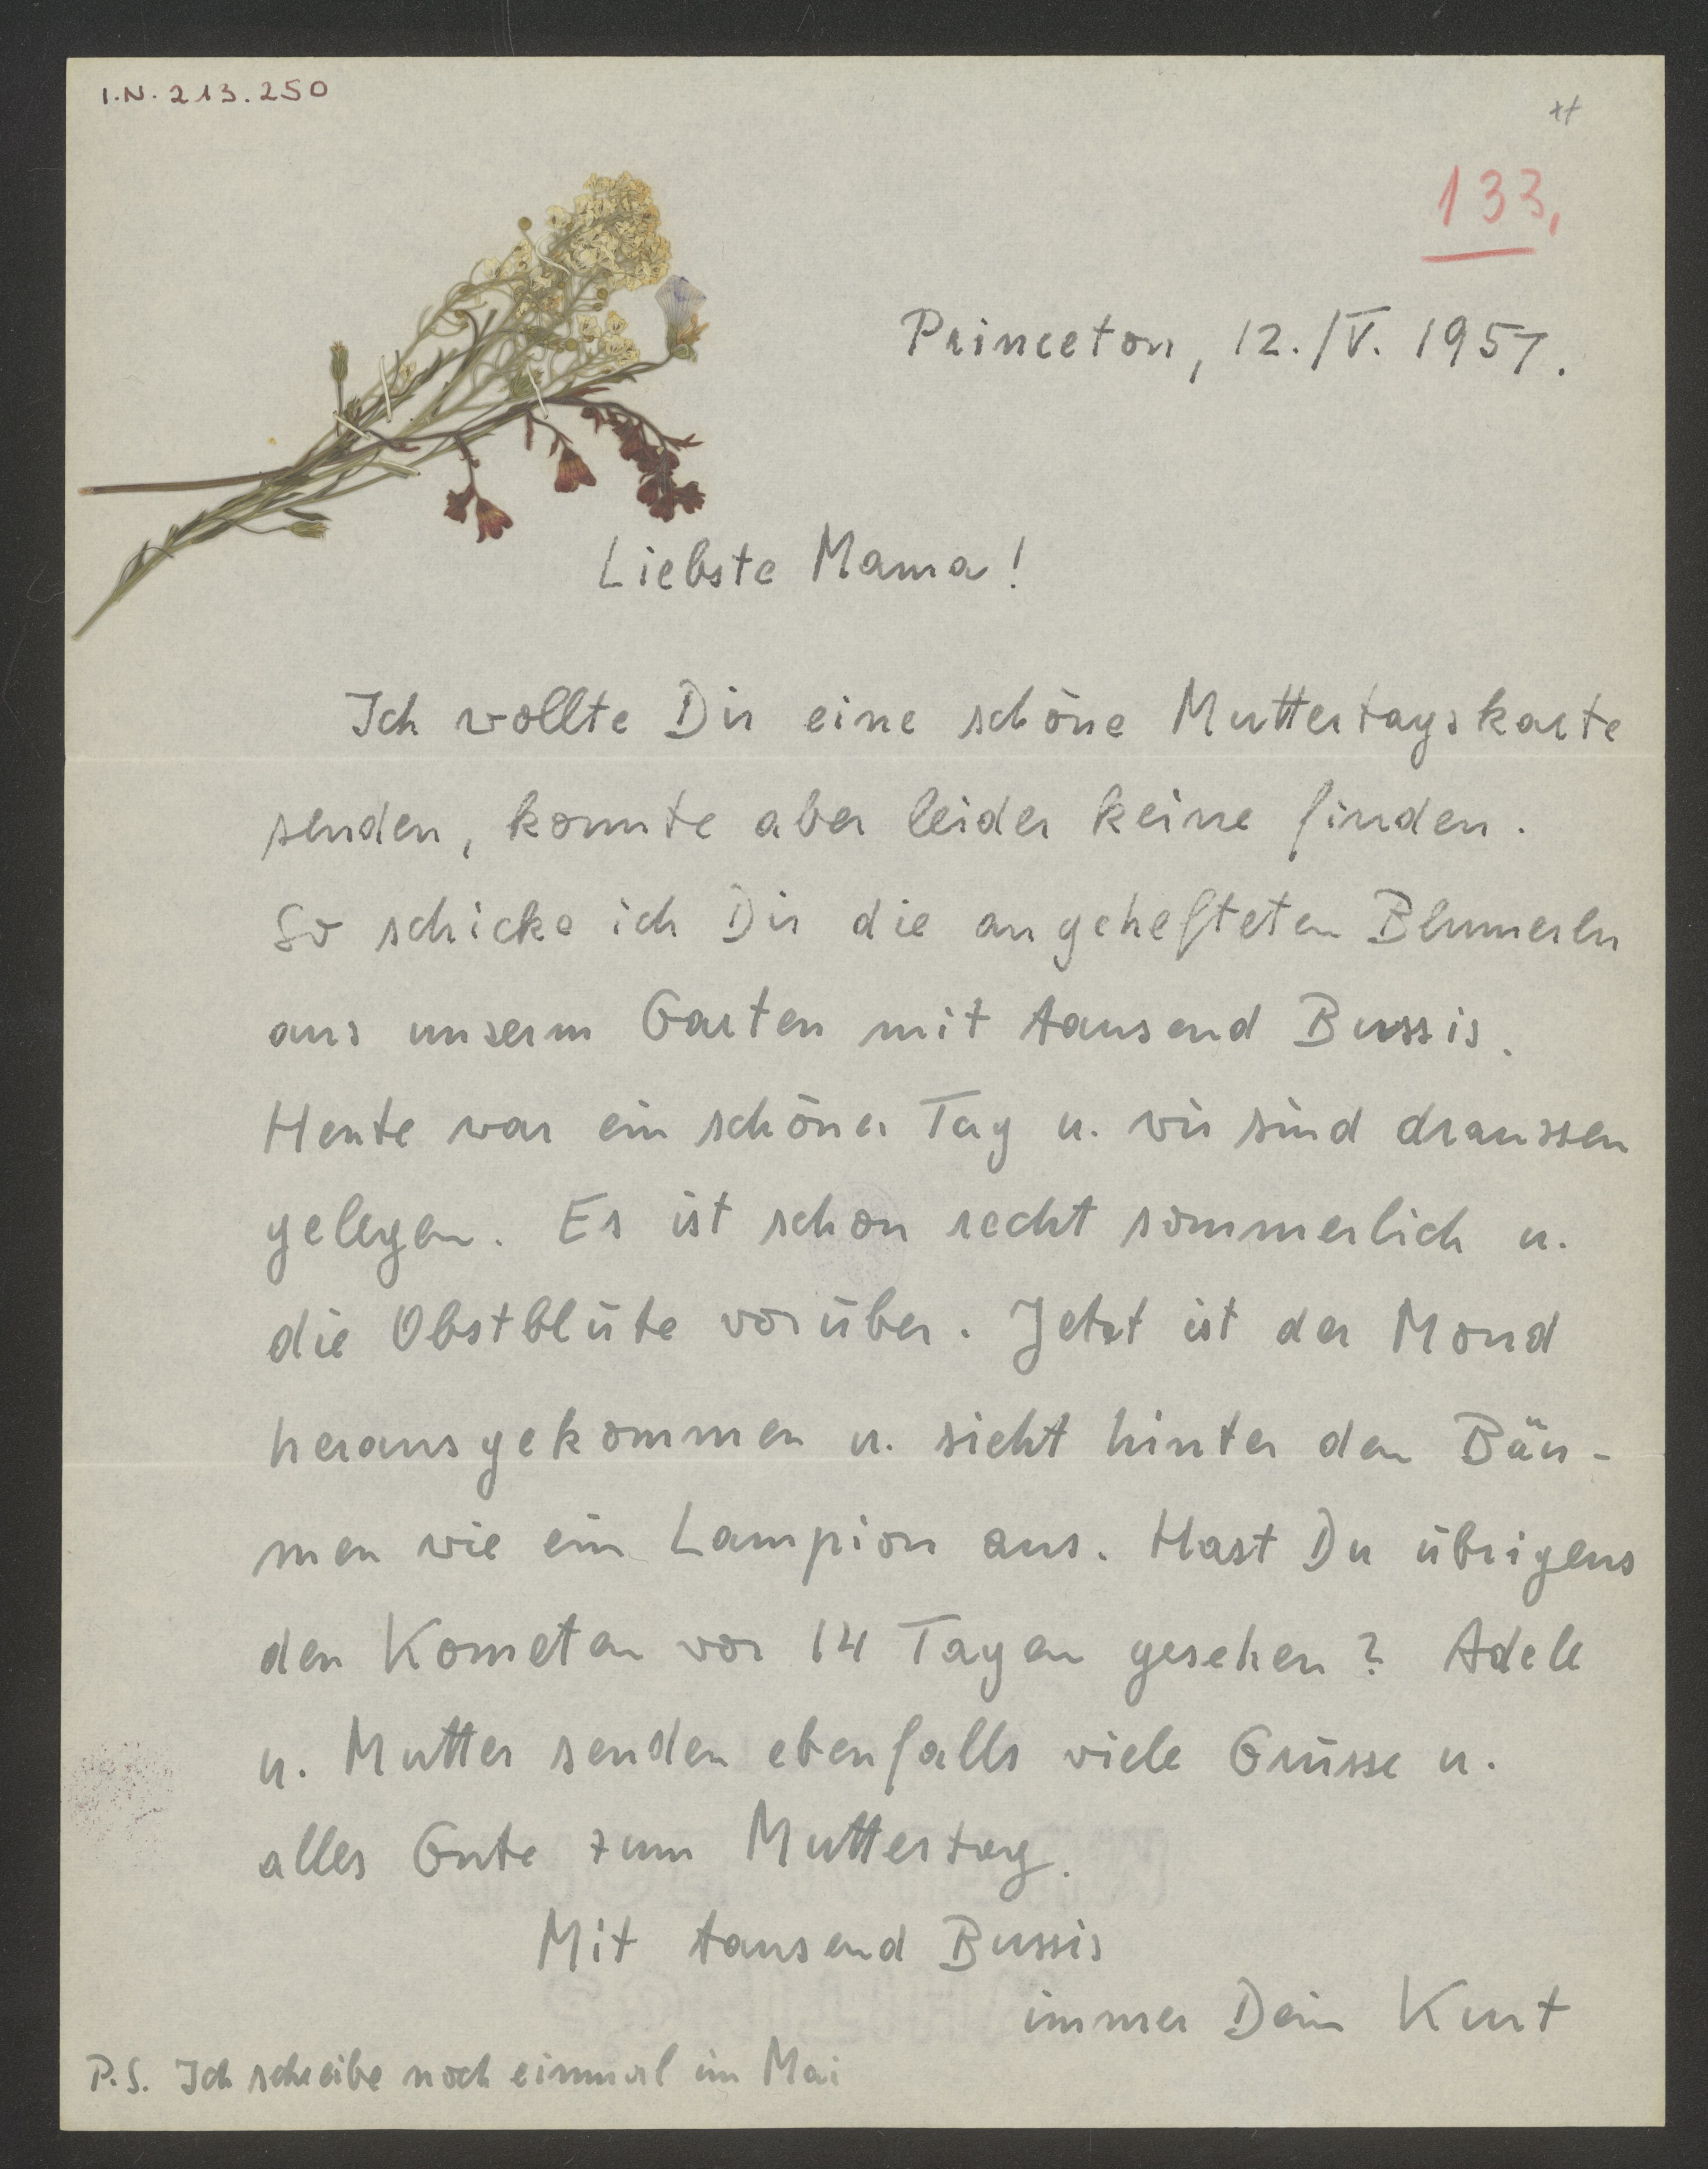 I.N. 213.250
133,
Princeton, 12./V. 1957.
Liebste Mama!
Ich wollte Dir eine schöne Muttertagskarte
senden, konnte aber leider keine finden.
So schicke ich Dir die angehefteten Blumerln
aus unserm Garten mit tausend Bussis.
Heute war ein schöner Tag u. wir sind draussen
gelegen. Es ist schon recht sommerlich u.
die Obstblüte vorüber. Jetzt ist der Mond
herausgekommen u. sieht hinter den Bäu-
men wie ein Lampion aus. Hast Du übrigens
den Kometen vor 14 Tagen gesehen? Adele
u. Mutter senden ebenfalls viele Grüsse u.
alles Gute zum Muttertag.
Mit tausend Bussis
immer Dein Kurt
P.S. Ich schreibe noch einmal im Mai